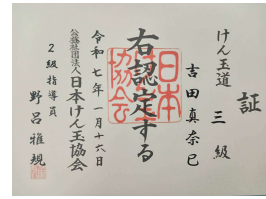 証
けん玉道 三級
吉田真奈巳
右認定する
令和七年一月十六日
公益社団法人日本けん玉協会
2級指導員 野呂雅規
日本けん玉協会